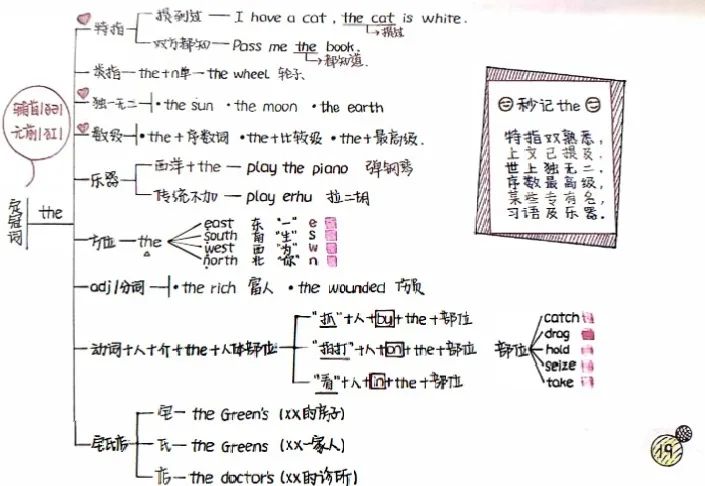 特指
提到过 — I have a cat , the cat is white.
→提过
双方都知 — Pass me the book.
→都知道.
类指 — the+n单 — the wheel 轮子
辅前|ðə|
元前|ðɪ|
独一无二 • the sun • the moon • the earth
数级 • the+序数词 • the+比较级 • the+最高级.
乐器
西洋+the — play the piano 弹钢琴
传统不加 — play erhu 拉二胡
定冠词 the
方位 — the
east 东 "一" e
south 南 "生" s
west 西 "为" w
north 北 "你" n
adj/分词 • the rich 富人 • the wounded 伤员
动词+人+介+the+人体部位
"抓"+人+by+the+部位
"拍打"+人+on+the+部位
"看"+人+in+the+部位
部位
catch
drag
hold
seize
take
宅氏店
宅 — the Green's (xx的房子)
氏 — the Greens (xx一家人)
店 — the doctor's (xx的诊所)
秒记 the
特指双熟悉,
上文已提及.
世上独无二,
序数最高级,
某些专有名,
习语及乐器.
19